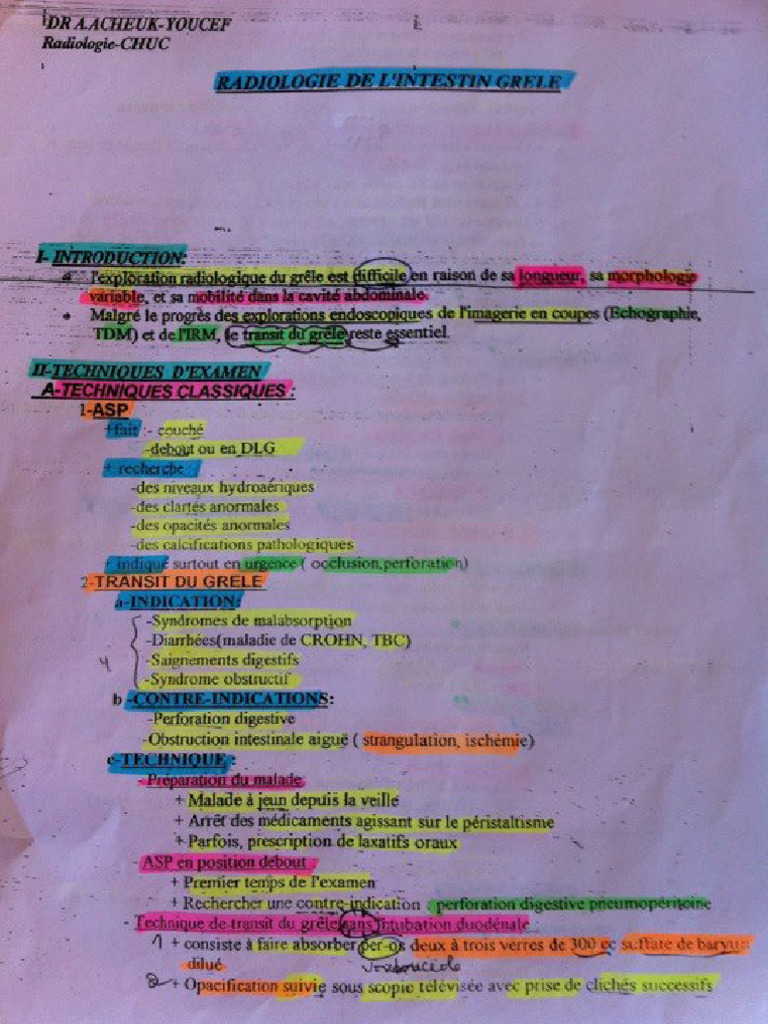 DR A.ACHEUK-YOUCEF
Radiologie-CHUC
RADIOLOGIE DE L'INTESTIN GRELE
I- INTRODUCTION:
l'exploration radiologique du grêle est difficile en raison de sa longueur, sa morphologie
variable, et sa mobilité dans la cavité abdominale.
• Malgré le progrès des explorations endoscopiques de l'imagerie en coupes (Echographie,
TDM) et de l'IRM, le transit du grêle reste essentiel.
II-TECHNIQUES D'EXAMEN
A-TECHNIQUES CLASSIQUES :
1-ASP
+fait :- couché
-debout ou en DLG
+ recherche :
-des niveaux hydroaériques
-des clartés anormales
-des opacités anormales
-des calcifications pathologiques
+ indiqué surtout en urgence ( occlusion,perforation)
2-TRANSIT DU GRELE
a-INDICATION:
-Syndromes de malabsorption
-Diarrhées(maladie de CROHN, TBC)
4
-Saignements digestifs
-Syndrome obstructif
b -CONTRE-INDICATIONS:
-Perforation digestive
-Obstruction intestinale aiguë ( strangulation, ischémie)
c-TECHNIQUE :
- Préparation du malade
+ Malade à jeun depuis la veille
+ Arrêt des médicaments agissant sur le péristaltisme
+ Parfois, prescription de laxatifs oraux
- ASP en position debout
+ Premier temps de l'examen
+ Rechercher une contre-indication : perforation digestive pneumopéritoine
- Technique de transit du grêle sans intubation duodénale
1 + consiste à faire absorber per-os deux à trois verres de 300 cc sulfate de baryum
dilué
2 + Opacification suivie sous scopie télévisée avec prise de clichés successifs